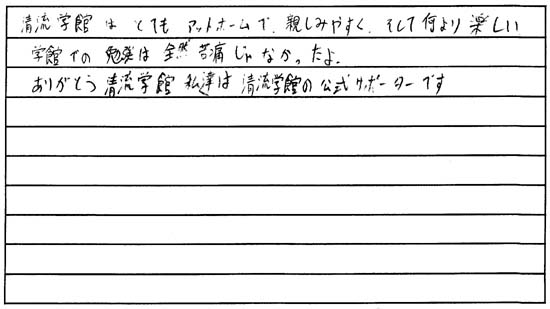 清流学館はとてもアットホームで、親しみやすく、そして何より楽しい
学館での勉強は全然苦痛じゃなかったよ。
ありがとう清流学館 私達は清流学館の公式サポーターです